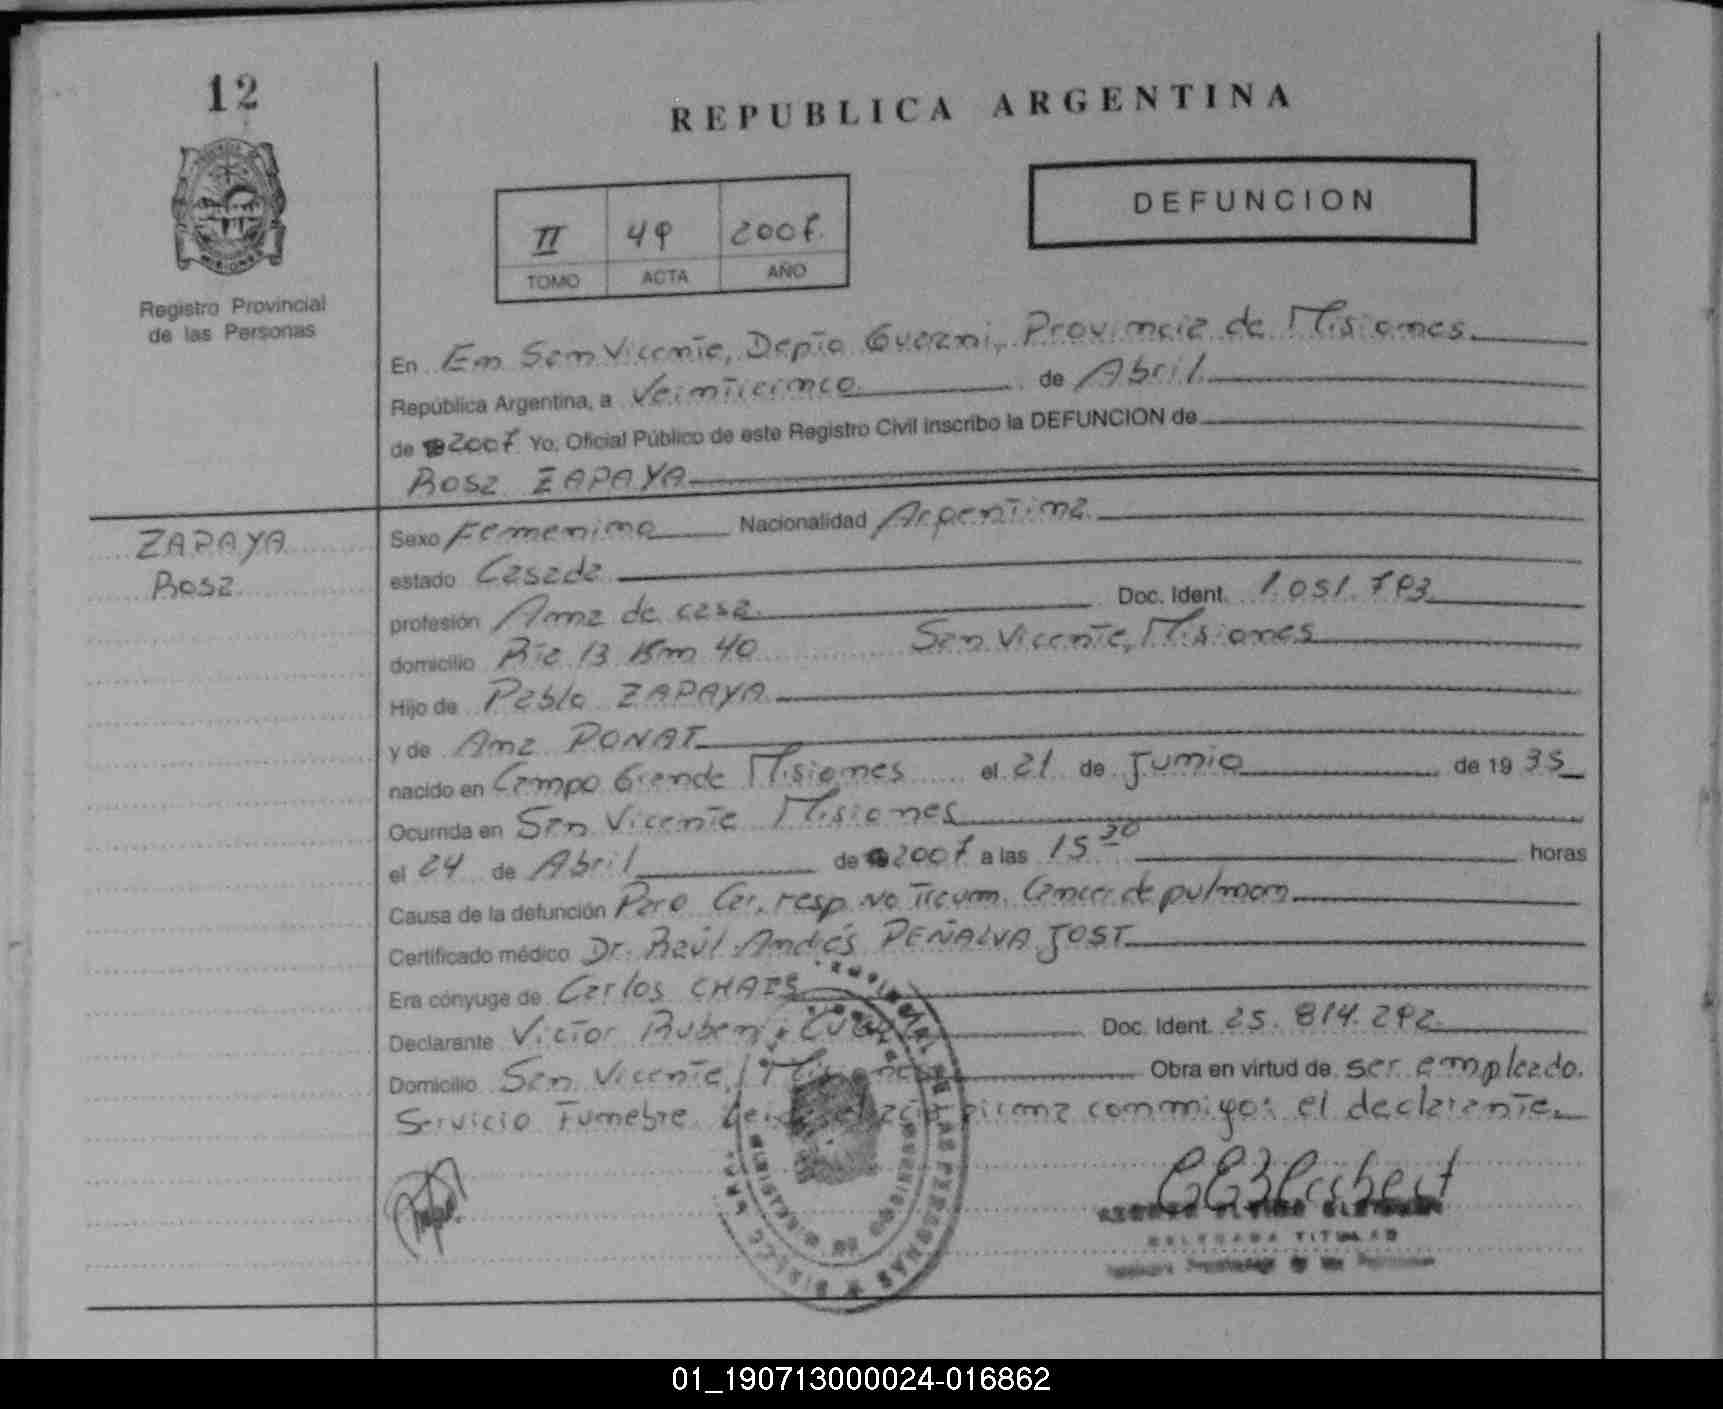 12
REPUBLICA ARGENTINA
DEFUNCION
II 49 2007.
TOMO ACTA AÑO
Registro Provincial
de las Personas
En En San Vicente, Depto Guarani, Provincia de Misiones
República Argentina, a Veinticinco de Abril
de 2007 Yo, Oficial Público de este Registro Civil inscribo la DEFUNCION de
Rosa ZAPAYA
ZAPAYA
Rosa
Sexo Femenino Nacionalidad Argentina
estado Casada
profesión Ama de casa Doc. Ident. 1.051.793
domicilio Rta 13 Km 40 San Vicente, Misiones
Hijo de Pablo ZAPAYA
y de Ana PONAT
nacido en Campo Grande Misiones el 21 de Junio de 19 35
Ocurrida en San Vicente Misiones
el 24 de Abril de 2007 a las 15 30 horas
Causa de la defunción Paro Car. resp. no traum. Cancer de pulmon
Certificado médico Dr. Raúl Andrés PEÑALVA JOST
Era cónyuge de Carlos CHAES
Declarante Victor Ruben Doc. Ident. 25.814.292
Domicilio San Vicente, Misiones Obra en virtud de ser empleado.
Servicio Funebre. Leida el acta firma conmigo: el declarante.
TITULAR
01_190713000024-016862